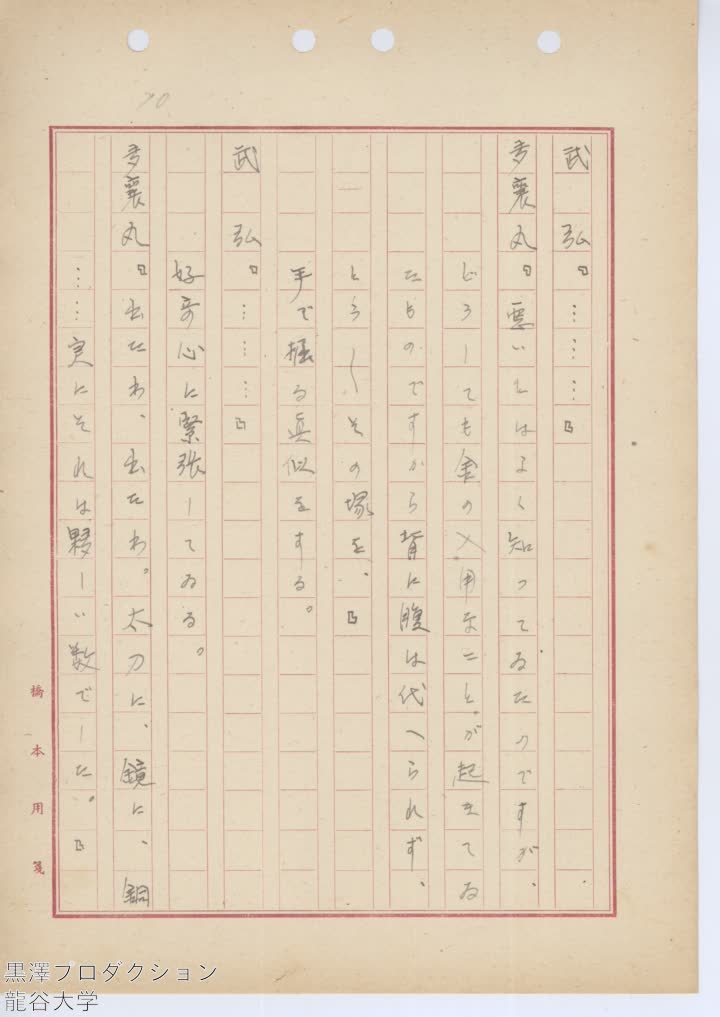 70
武弘『………』
多襄丸『悪いとはよく知ってゐたのですが、
どうしても金の入用なことが起きてゐ
たものですから背に腹は代へられず、
とう〳〵その塚を、』
手で掘る真似をする。
武弘『………』
好奇心に緊張してゐる。
多襄丸『出たわ、出たわ。太刀に、鏡に、銅
……実にそれは夥しい数でした。』
橋本用箋
黒澤プロダクション
龍谷大学